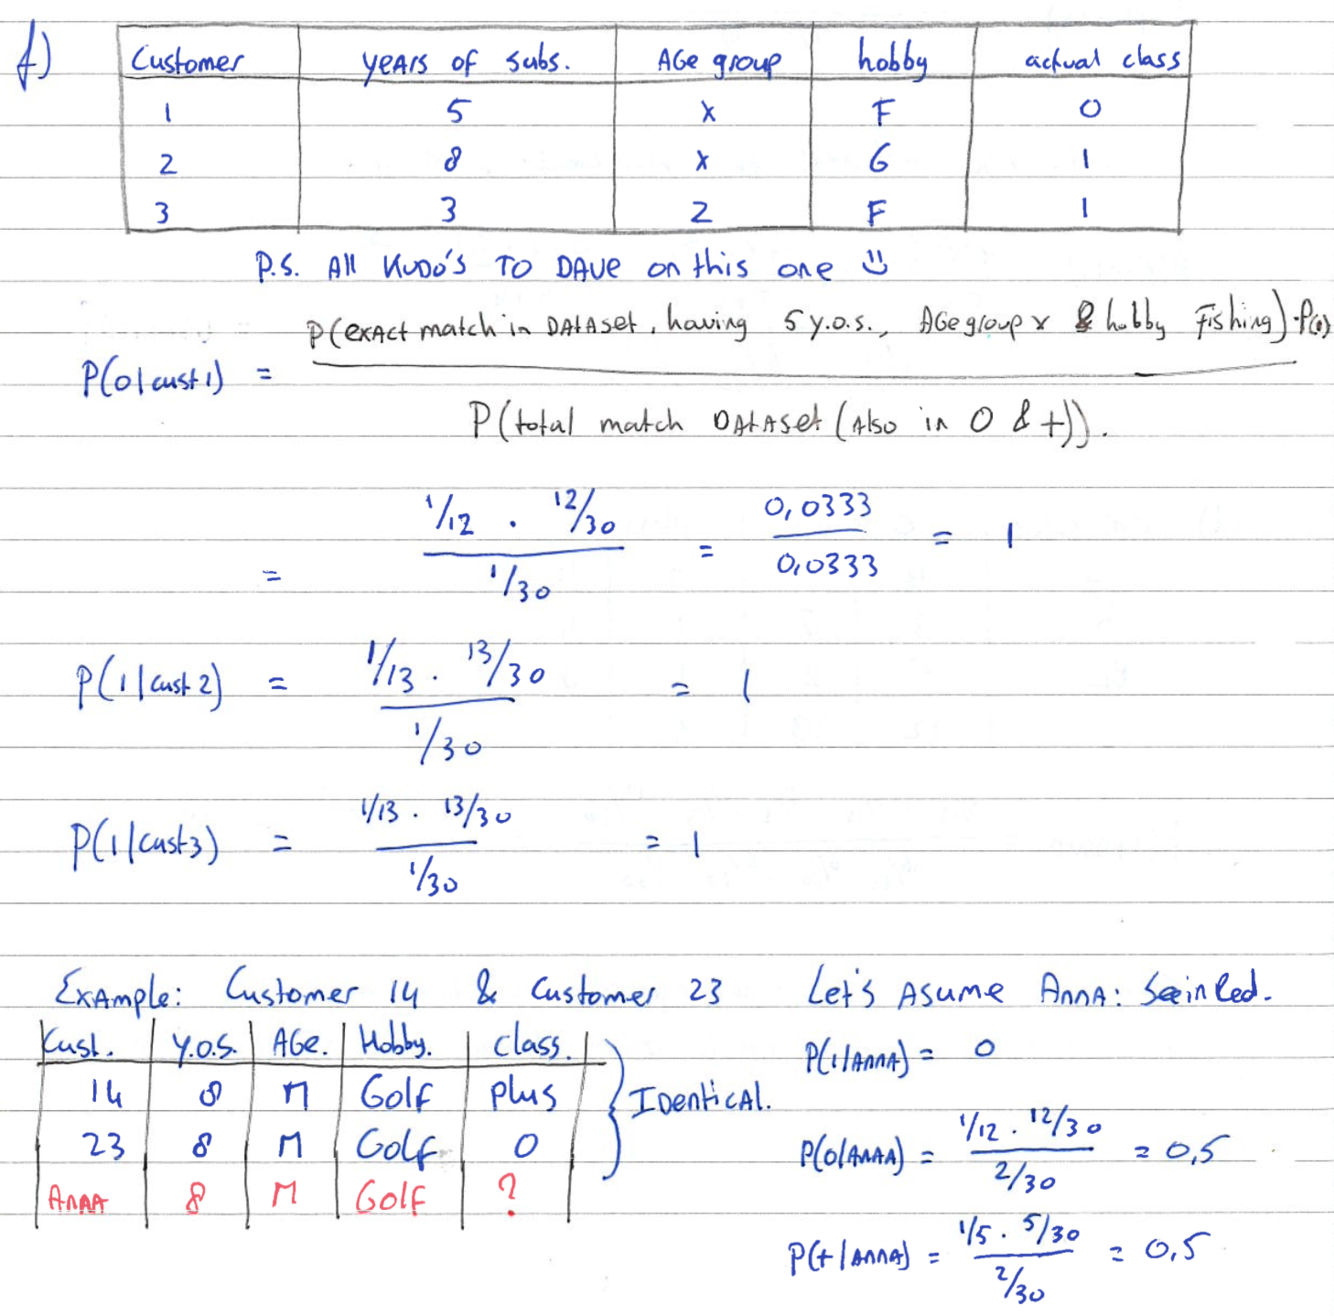 f)
Customer years of subs. Age group hobby actual class
1 5 X F 0
2 8 X G 1
3 3 Z F 1
P.S. All KUDO'S TO DAVE on this one
P(exact match in DATAset, having 5 y.o.s., AGe group x & hobby Fishing) · P(0)
P(0|cust 1) =
P(total match DATAset (Also in 0 & +)).
= 1/12 · 12/30 / 1/30 = 0,0333 / 0,0333 = 1
P(1|cust 2) = 1/13 · 13/30 / 1/30 = 1
P(1|cust 3) = 1/13 · 13/30 / 1/30 = 1
Example: Customer 14 & Customer 23 Let's Asume Anna:
Cust. Y.O.S. AGe. Hobby. Class.
14 8 M Golf plus
23 8 M Golf 0
Identical.
Anna 8 M Golf ?
P(1|Anna) = 0
P(0|Anna) = 1/12 · 12/30 / 2/30 = 0,5
P(+|Anna) = 1/5 · 5/30 / 2/30 = 0,5